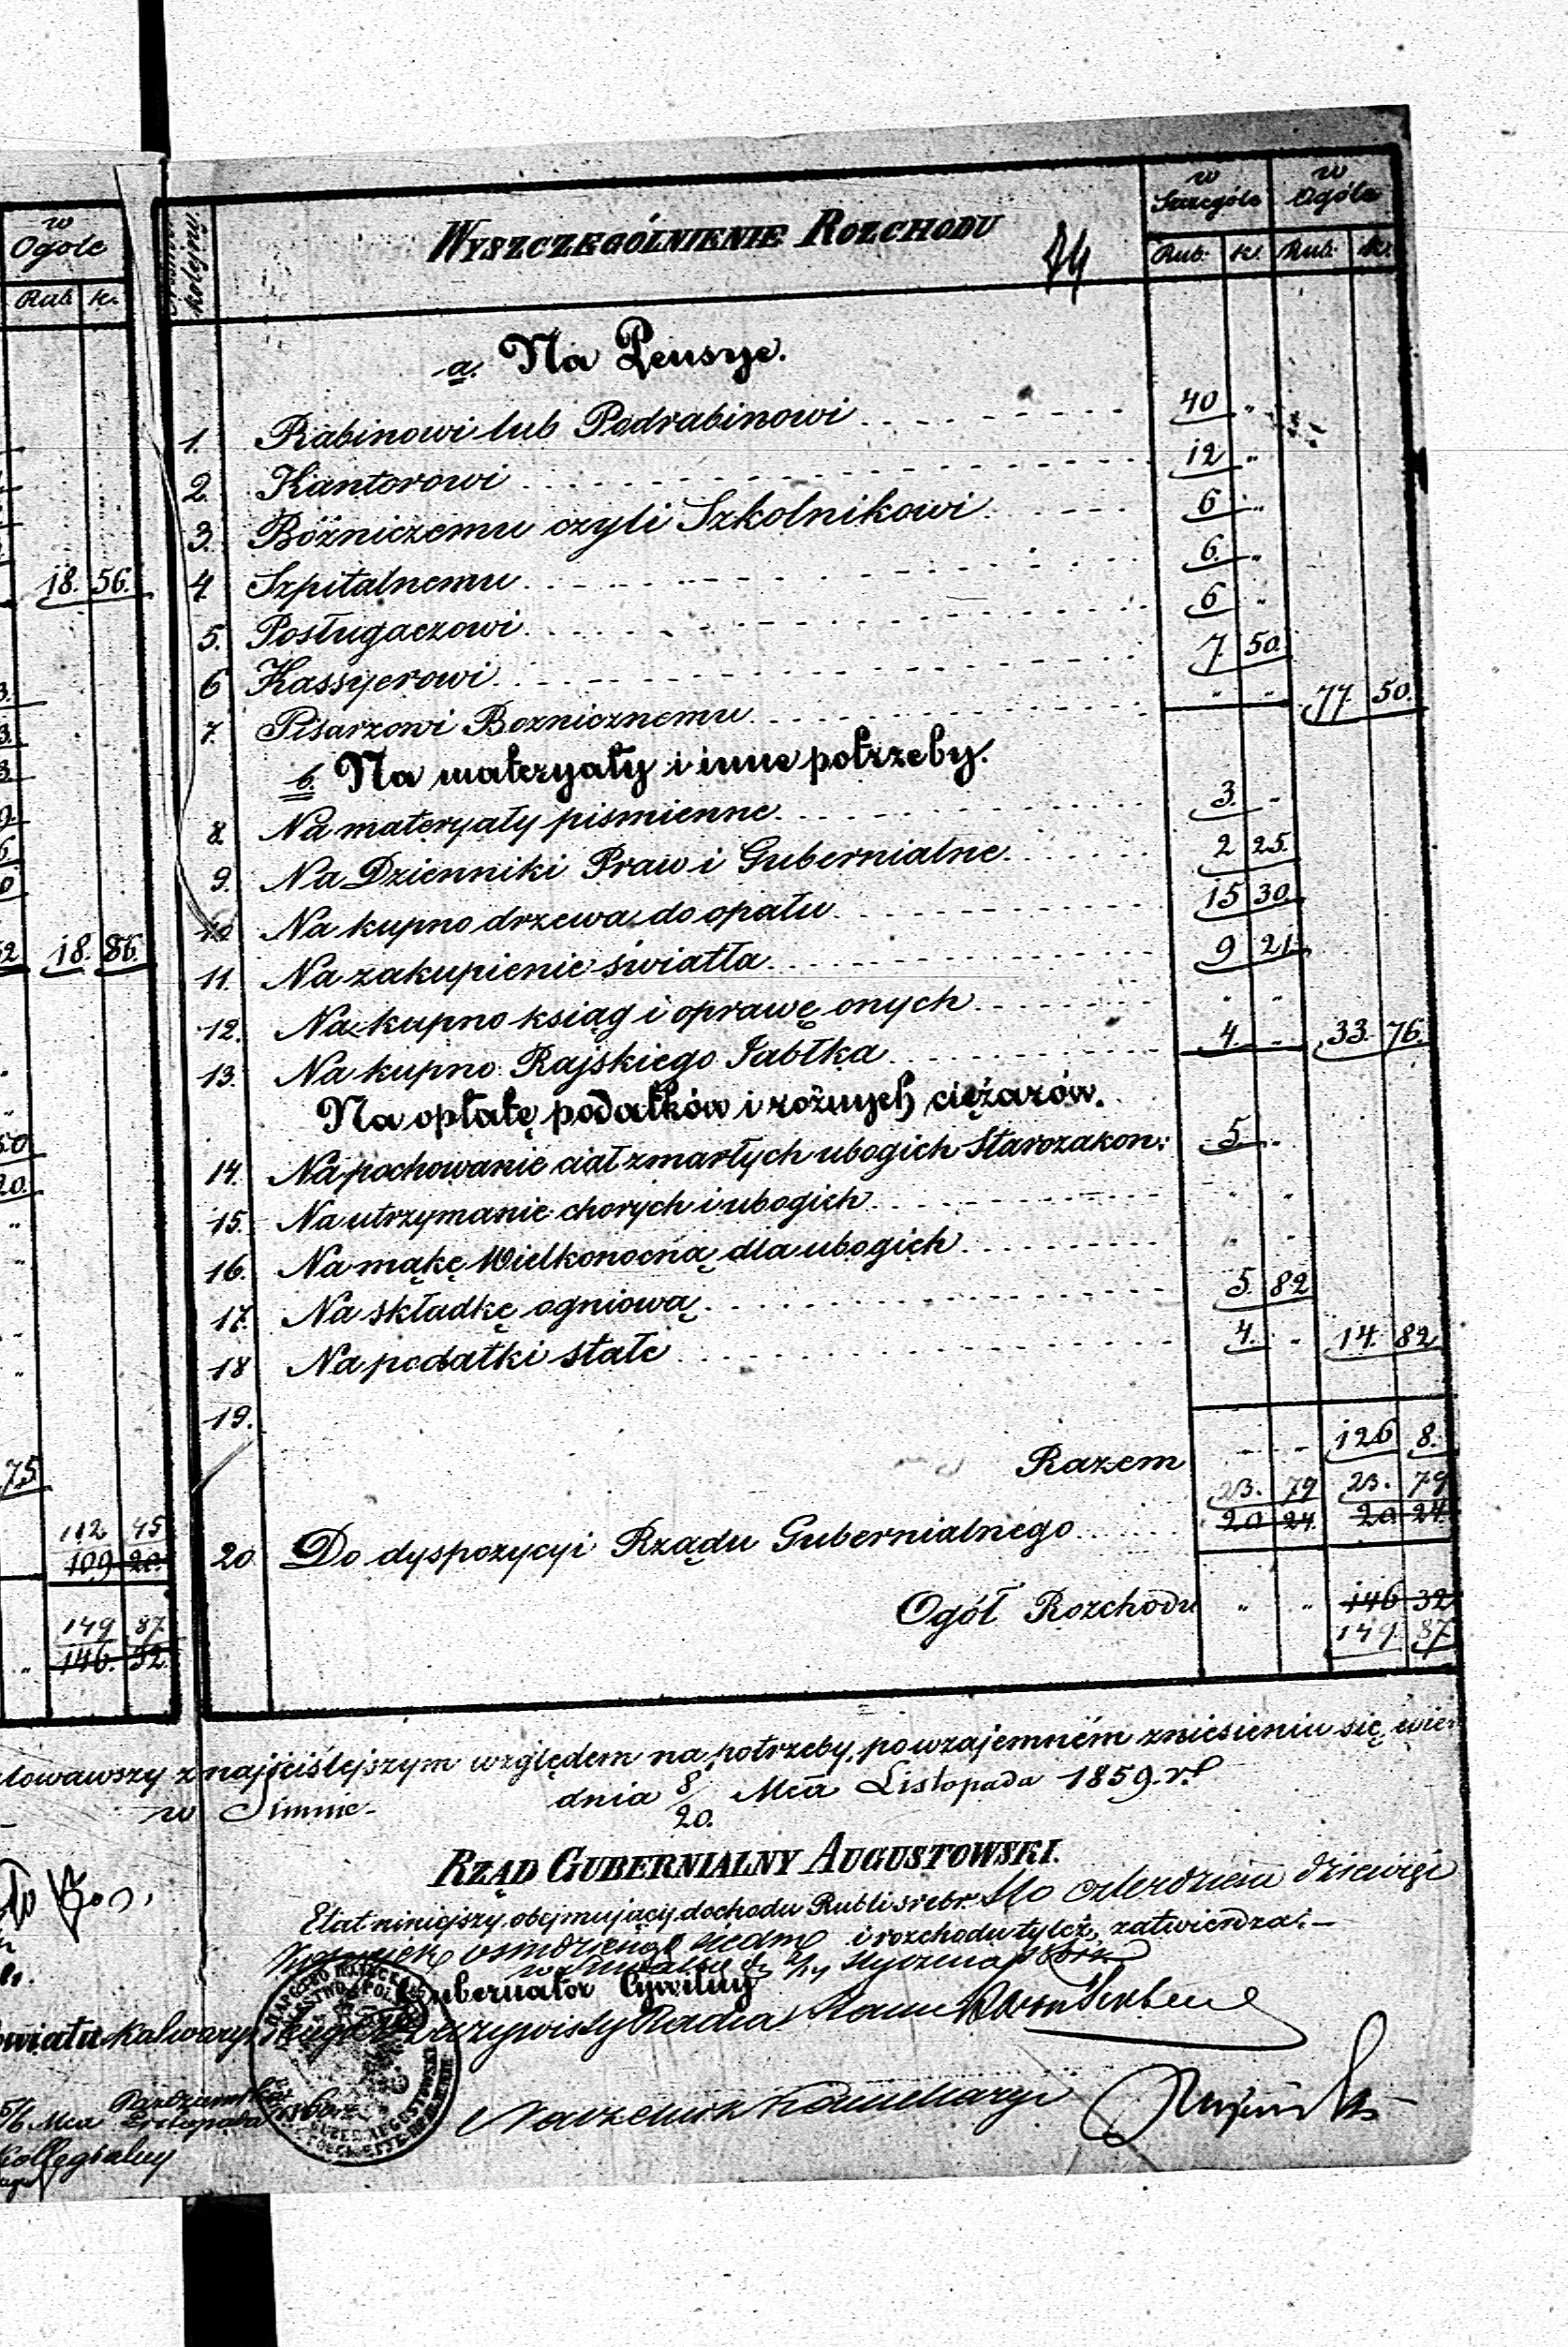 w
Ogóle
Rub. k.
18. 56.
18. 86.
75
112 45
109 20.
149 87
146. 32
kolejny.
WYSZCZEGÓLNIENIE ROZCHODU
74
w Szczególe
w Ogóle
Rub. k. Rub. k.
a. Na Pensye.
1. Rabinowi lub Podrabinowi 40 "
2. Kantorowi 12 "
3. Bóżniczemu czyli Szkolnikowi 6 "
4. Szpitalnemu 6. "
5. Posługaczowi 6 "
6 Kassyerowi 7 50.
7. Pisarzowi Boznicznemu " " 77 50.
b. Na materyały i inne potrzeby.
8. Na materyały piśmienne 3. "
9. Na Dzienniki Praw i Gubernialne 2 25.
10 Na kupno drzewa do opału 15 30.
11. Na zakupienie światła 9 21.
12. Na kupno ksiąg i oprawę onych " "
13. Na kupno Rajskiego Jabłka 4. " 33. 76.
Na opłatę podatków i rożnych ciężarów.
14. Na pochowanie ciał zmarłych ubogich Starozakon: 5 "
15. Na utrzymanie chorych i ubogich " "
16. Na mąkę Wielkonocną dla ubogich " "
17. Na składkę ogniową 5. 82
18 Na podatki stałe 4. " 14. 82
19.
Razem " " 126 8.
23. 79 23. 79
20. Do dyspozycyi Rządu Gubernialnego 20 24. 20 24.
Ogół Rozchodu " " 146 32
149. 87
z najściślejszym względem na potrzeby, po wzajemném zniesieniu się,
w Simnie dnia 8/20. Mca Listopada 1859. r.
RZĄD GUBERNIALNY AUGUSTOWSKI.
Etat niniejszy, obejmujący dochodu Rubli srebr. sto czterdzieści dziewięć
kopiejek osmdziesiąt siedm i rozchodu tyleż, zatwierdza.
Gubernator Cywilny
Rzeczywisty Radca Stanu
Naczelnik Kancellaryi
Października
Mca Listopada
Kollegialny